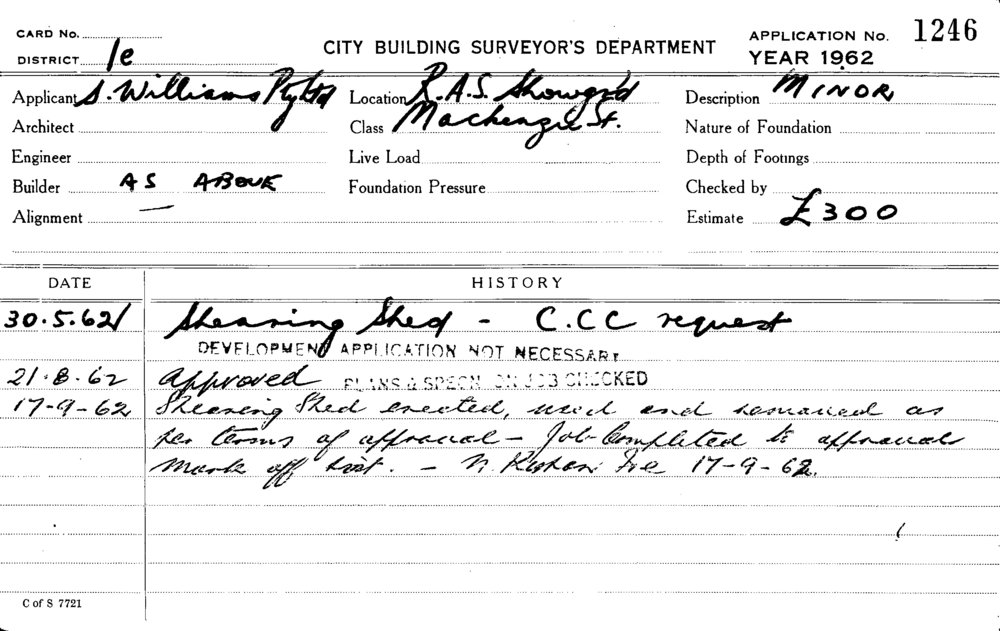 CARD No.
DISTRICT 1e
CITY BUILDING SURVEYOR'S DEPARTMENT
APPLICATION No. 1246
YEAR 1962
Applicant S. Williams Pty Ltd Location R.A.S. Showgr'd Description MINOR
Architect Class Mackenzie St. Nature of Foundation
Engineer Live Load Depth of Footings
Builder AS ABOVE Foundation Pressure Checked by
Alignment — Estimate £300
DATE HISTORY
30.5.62 Shearing Shed - C.C.C request
DEVELOPMENT APPLICATION NOT NECESSARY
21.8.62 Approved PLANS & SPECN ON JOB CHECKED
17-9-62 Shearing Shed erected, used and removed as
per terms of approval - Job Completed to approval
Mark off list. - N. 17-9-62.
C of S 7721